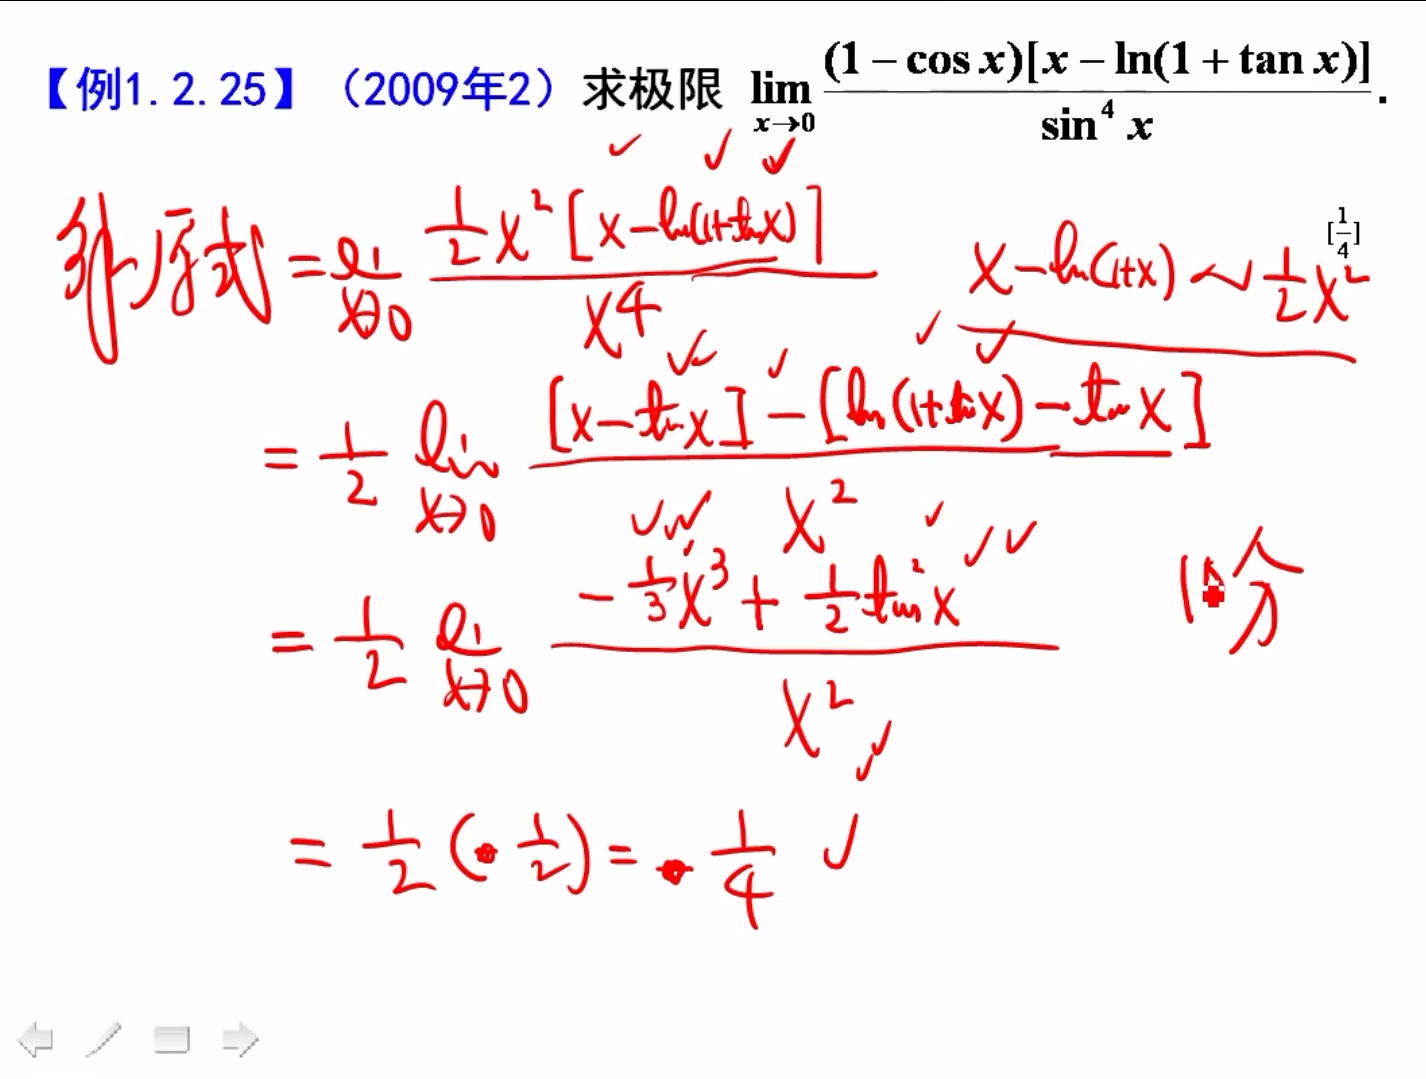 【例1.2.25】（2009年2）求极限 lim x→0 (1 − cos x)[x − ln(1 + tan x)] / sin⁴ x .
[1/4]
解 原式 = lim x→0 1/2 x² [x − ln(1+tan x)] / x⁴
x − ln(1+x) ~ 1/2 x²
= 1/2 lim x→0 [x − tan x] − [ln(1+tan x) − tan x] / x²
= 1/2 lim x→0 − 1/3 x³ + 1/2 tan² x / x²
10分
= 1/2 ( 1/2 ) = 1/4